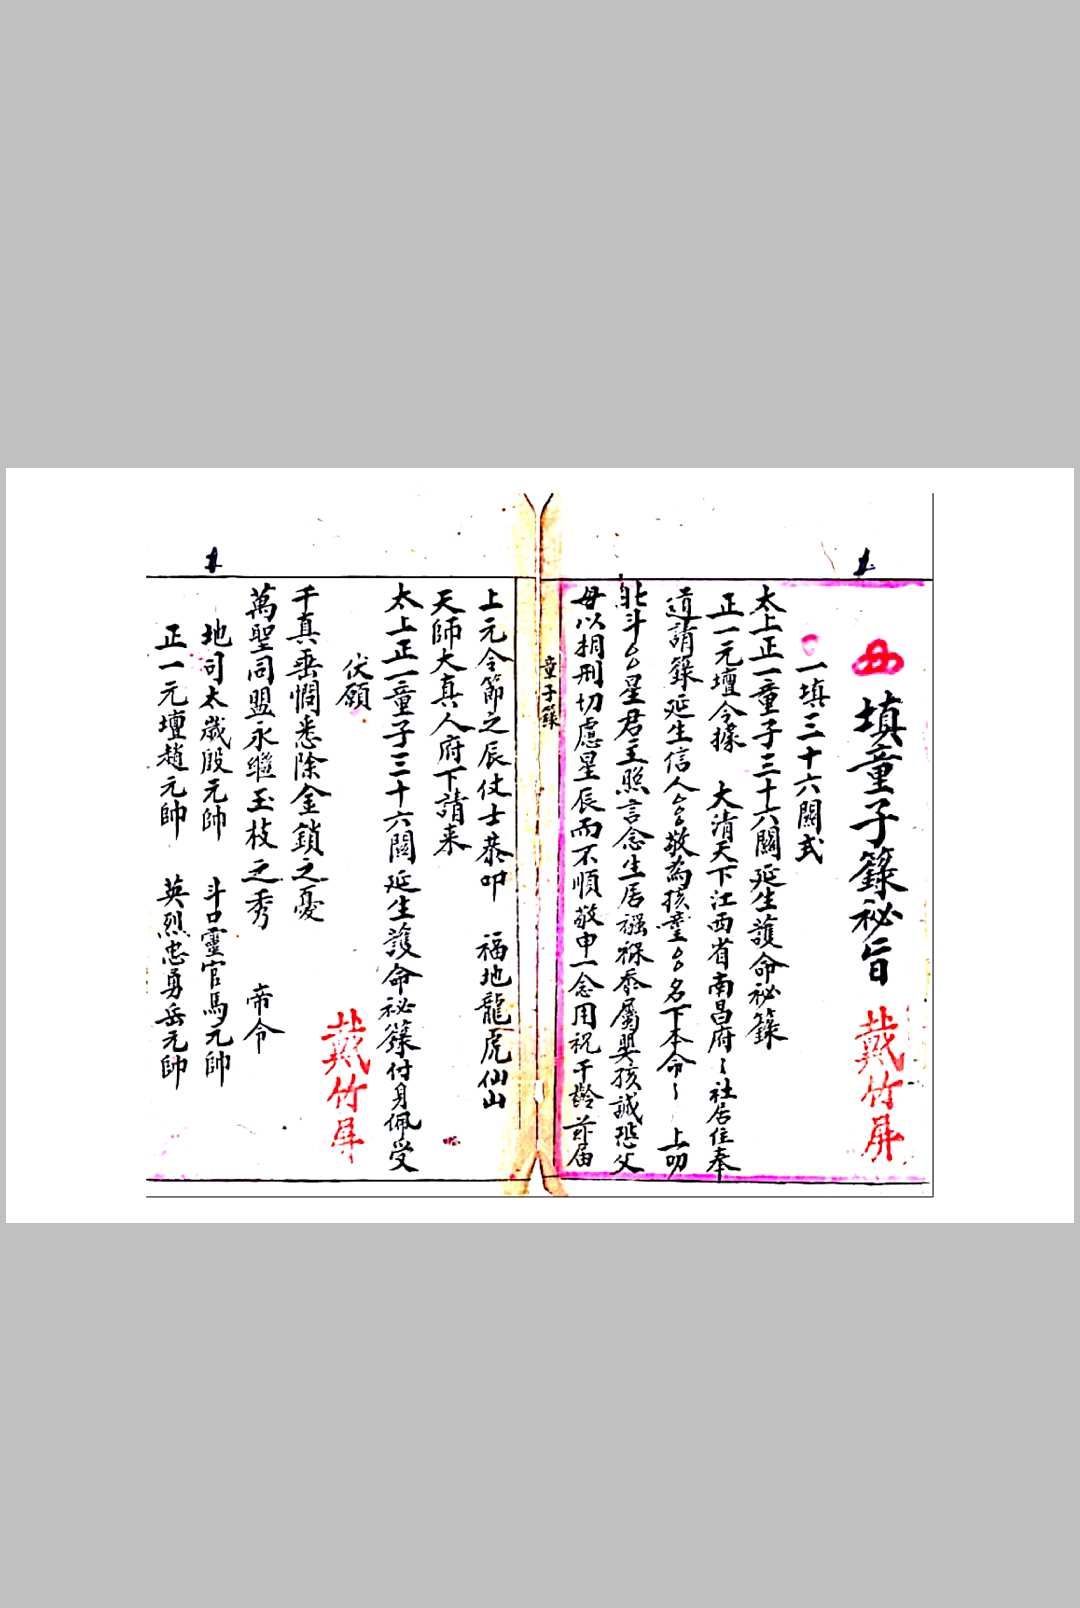 填童子籙祕旨
戴竹屏
一填三十六關式
太上正一童子三十六關延生護命祕籙
正一元壇今據 大清天下江西省南昌府 社居住奉
道請籙延生信人 敬為孩童 名下本命 上叩
北斗 星君主照言念生居襁褓忝屬嬰孩誠恐父
母以相刑切慮星辰而不順敬申一念用祝千齡茲届
童子籙
上元令節之辰仗士恭叩 福地龍虎仙山
天師大真人府下請来
太上正一童子三十六關延生護命祕籙付身佩受
伏願
戴竹屏
千真垂憫悉除金鎖之憂
萬聖同盟永繼玉枝之秀 帝令
地司太歲殷元帥 斗口靈官馬元帥
正一元壇趙元帥 英烈忠勇岳元帥